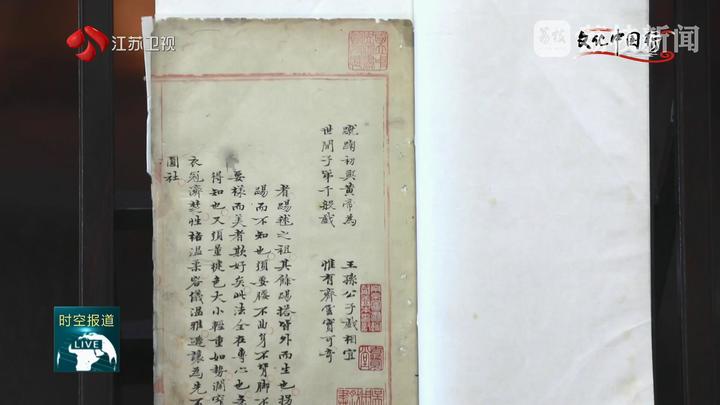 江苏卫视
荔枝新闻
文化中国行
蹴踘初興黃帝為 王孫公子戲相宜
世間子弟千般戲 惟有齊雲實可奇
者踢毬之祖其餘踢搭皆外而生也拐
踢而不知也須要腰不曲身不背脚不
要樣而美者歟好矣此法全在專心也
得知也又須量色大小輕重如勢濶窄
衣冠濟楚性格溫柔容儀溫雅遜讓為先不
圓社
时空报道
LIVE